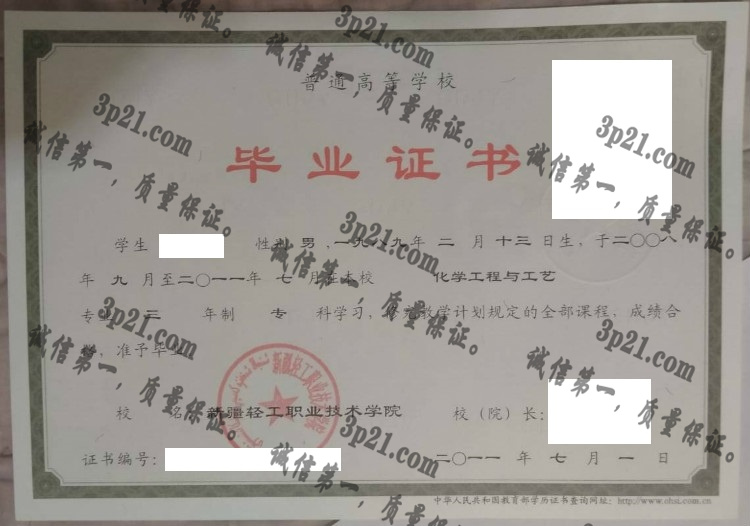 普通高等学校
毕业证书
学生 性别 男，一九八九年 二 月 十三 日生，于二〇〇八
年 九 月至二〇一一年 七 月在本校 化学工程与工艺
专业 三 年制 专 科学习，修完教学计划规定的全部课程，成绩合
格，准予毕业
校 名 新疆轻工职业技术学院 校（院）长：
证书编号： 二〇一一 年 七 月 一 日
中华人民共和国教育部学历证书查询网址：http://www.chsi.com.cn
新疆轻工职业技术学院
3p21.com
诚信第一，质量保证。
3p21.com
诚信第一，质量保证。
3p21.com
诚信第一，质量保证。
3p21.com
诚信第一，质量保证。
3p21.com
诚信第一，质量保证。
3p21.com
诚信第一，质量保证。
3p21.com
诚信第一，质量保证。